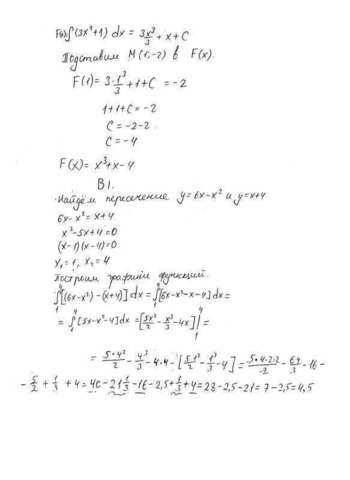 F(x)=∫(3x²+1) dx = 3x³/3 + x + C
Подставим M(1;-2) в F(x).
F(1) = 3·1³/3 + 1 + C = -2
1+1+C = -2
C = -2-2
C = -4
F(x) = x³+x-4
В1.
Найдём пересечение y=6x-x² и y=x+4
6x-x² = x+4
x²-5x+4=0
(x-1)(x-4)=0
x₁=1, x₂=4
Построим графики функций.
∫₁⁴[(6x-x²)-(x+4)]dx = ∫₁⁴[6x-x²-x-4]dx =
= ∫₁⁴[5x-x²-4]dx = [5x²/2 - x³/3 - 4x]|₁⁴ =
= 5·4²/2 - 4³/3 - 4·4 - [5·1²/2 - 1³/3 - 4] = 5·4·2·2/2 - 64/3 - 16 -
- 5/2 + 1/3 + 4 = 40 - 21 1/3 - 16 - 2,5 + 1/3 + 4 = 28 - 2,5 - 21 = 7 - 2,5 = 4,5